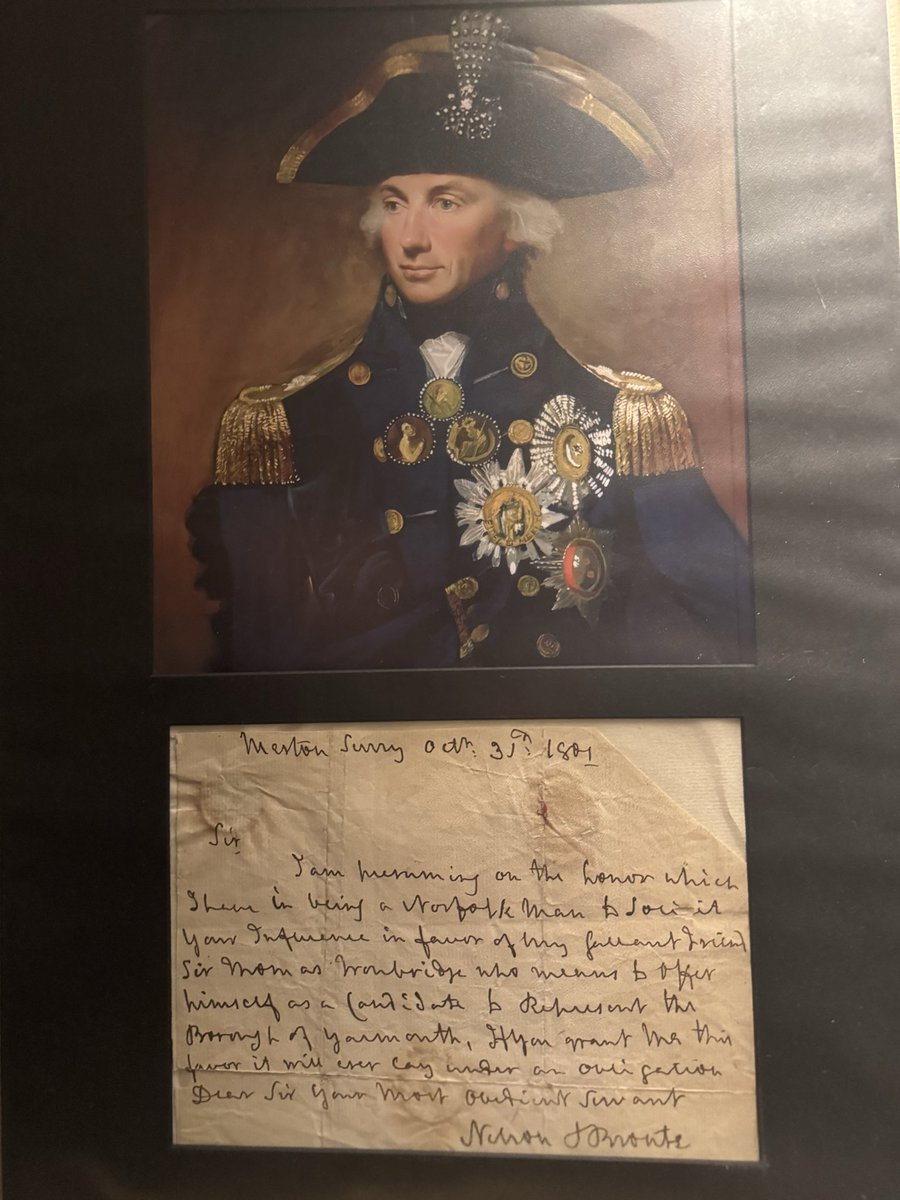 Merton Surry Octr: 31st: 1801
Sir,
I am presuming on the honor which
I have in being a Norfolk Man to Solicit
Your Influence in favor of my gallant Friend
Sir Thomas Troubridge who means to offer
himself as a Candidate to Represent the
Borough of Yarmouth, If You grant me this
favor it will ever lay under an obligation
Dear Sir Your Most Obedient Servant
Nelson & Bronte